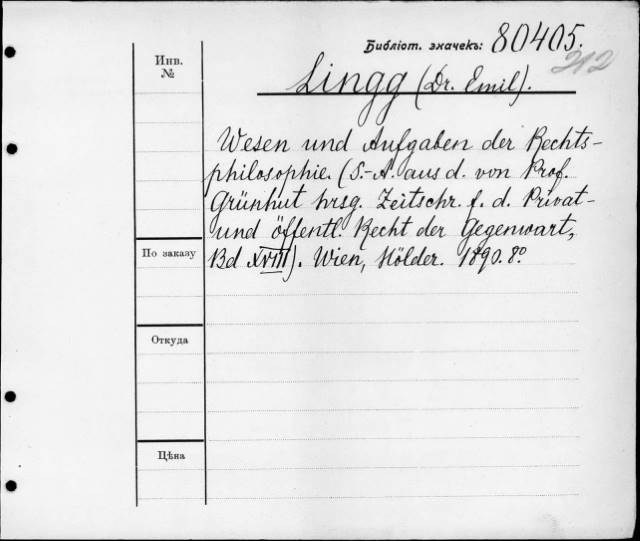 Библіот. значекъ: 80405.
212
Инв.
№
Lingg (Dr. Emil).
Wesen und Aufgaben der Rechts-
philosophie. (S.-A. aus d. von Prof.
Grünhut hrsg. Zeitschr. f. d. Privat-
und öffentl. Recht der Gegenwart,
Bd XVIII). Wien, Hölder. 1890. 8°.
По заказу
Откуда
Цѣна